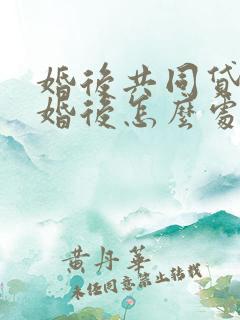 婚後共同貸
婚後怎麼處
黄丹華
未经同意禁止转载